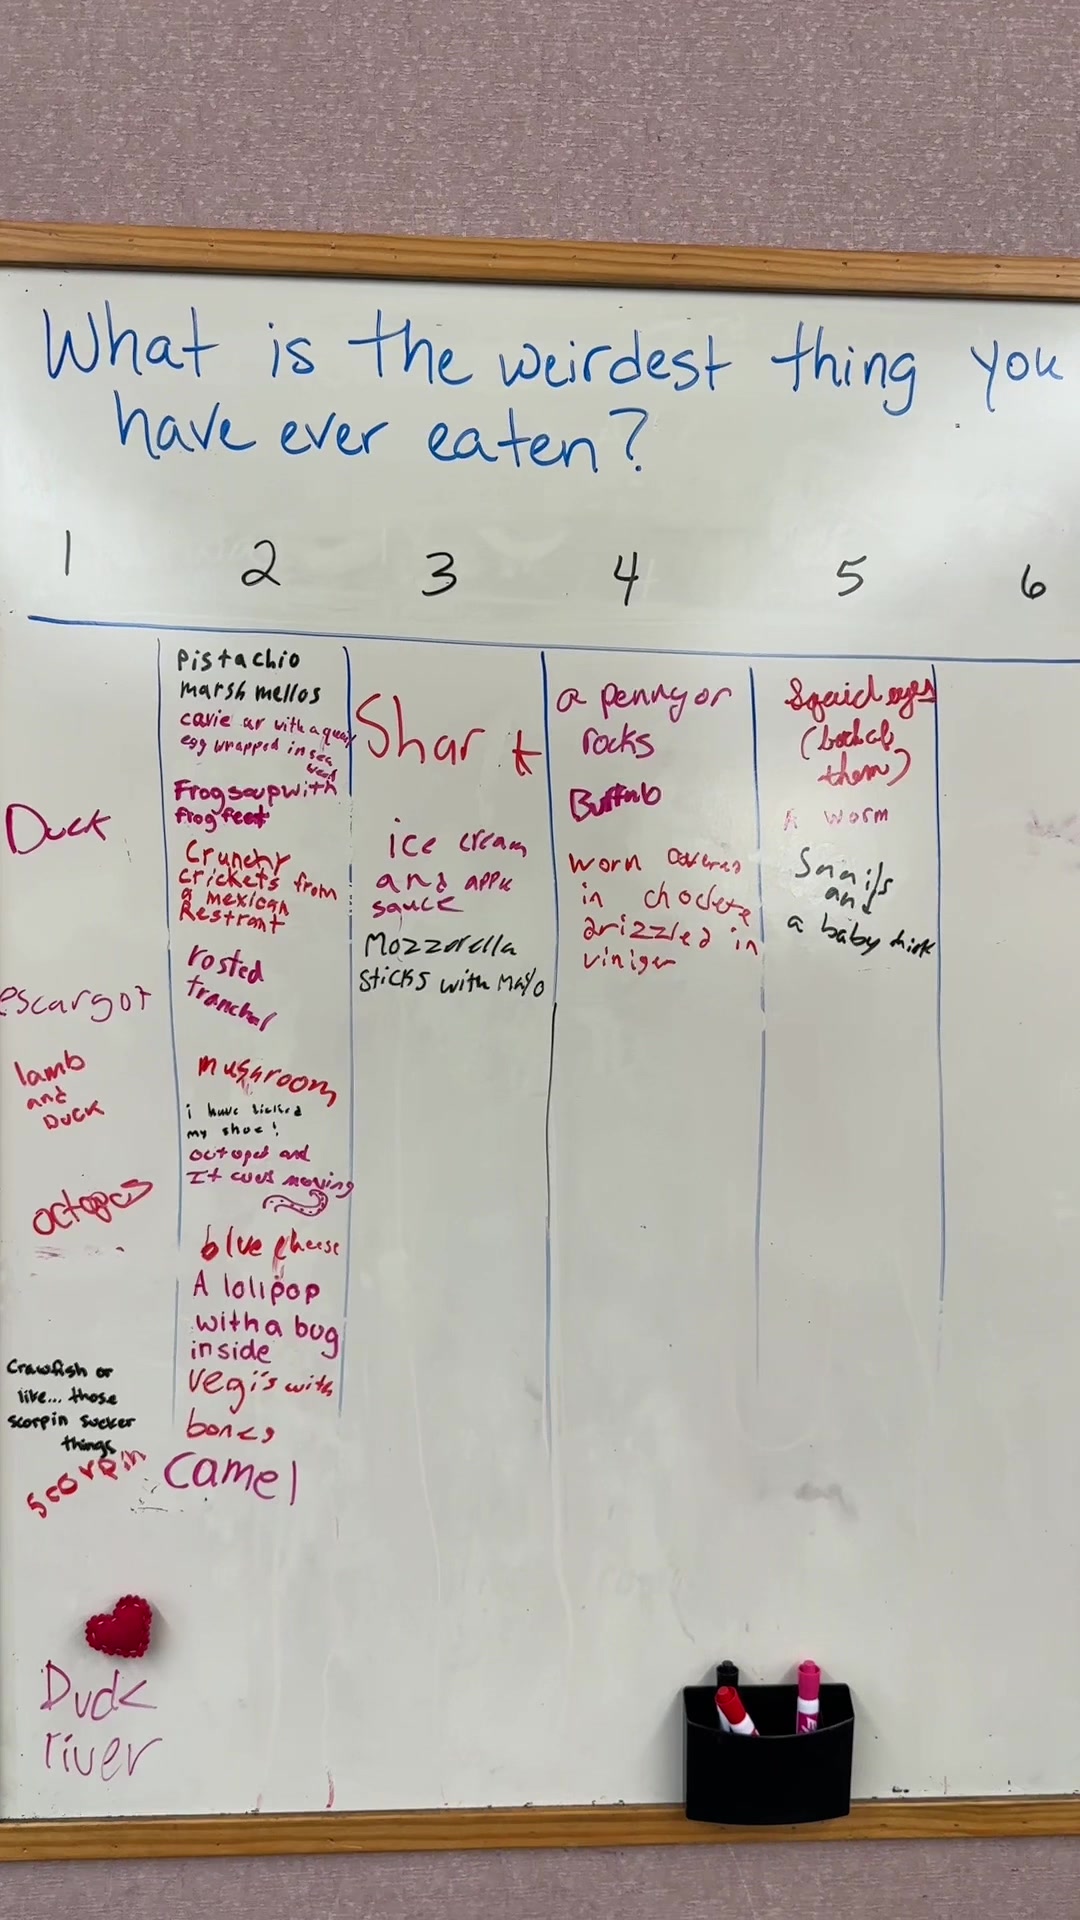 What is the weirdest thing you
have ever eaten?
1 2 3 4 5 6
Duck
escargot
lamb
and
Duck
octopus
Crawfish or
like... those
scorpin sucker
things
scorpin
Duck
river
Pistachio
marshmellos
cavie ar with a quail
egg wrapped in sea
weed
Frog soup with
frog feet
Crunchy
crickets from
a mexican
Restrant
rosted
mushroom
i have licked
my shoe!
octopet and
It was moving
blue cheese
A lolipop
with a bug
inside
vegi's with
bones
camel
Shark
ice cream
and apple
sauce
Mozzorella
sticks with Mayo
a penny or
rocks
Buffalo
worm
in choclete
drizzled in
viniger
Squid eyes
(both of
them)
A worm
Snails
and
a baby